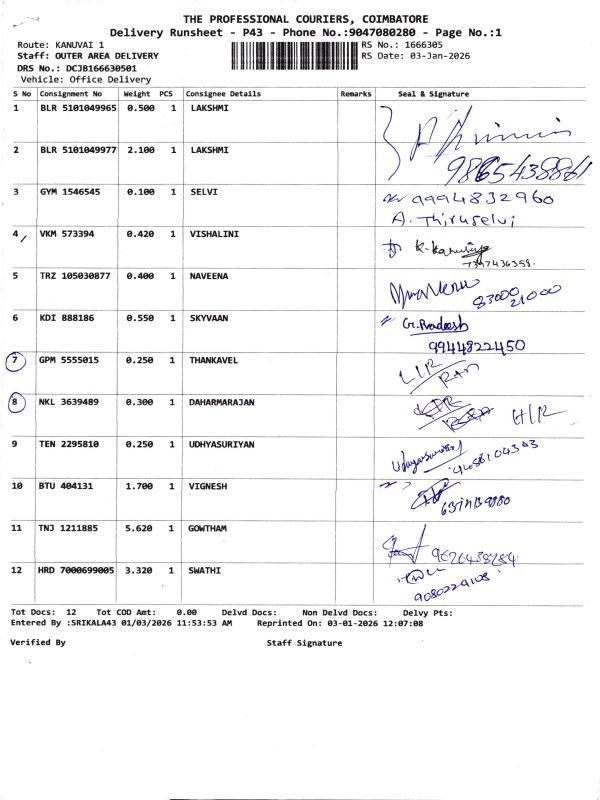 THE PROFESSIONAL COURIERS, COIMBATORE
Delivery Runsheet - P43 - Phone No.:9047080280 - Page No.:1
Route: KANUVAI 1
Staff: OUTER AREA DELIVERY
DRS No.: DCJB166630501
Vehicle: Office Delivery
RS No.: 1666305
RS Date: 03-Jan-2026
S No Consignment No Weight PCS Consignee Details Remarks Seal & Signature
1 BLR 5101049965 0.500 1 LAKSHMI
2 BLR 5101049977 2.100 1 LAKSHMI
9865438861
3 GYM 1546545 0.100 1 SELVI 9994832960
A. Thiruselvi
4 VKM 573394 0.420 1 VISHALINI
7397436358.
5 TRZ 105030877 0.400 1 NAVEENA
83000
21000
6 KDI 888186 0.550 1 SKYVAAN G. Pradeesh
9944822450
7 GPM 5555015 0.250 1 THANKAVEL
8 NKL 3639489 0.300 1 DAHARMARAJAN
9 TEN 2295810 0.250 1 UDHYASURIYAN
10 BTU 404131 1.700 1 VIGNESH
11 TNJ 1211885 5.620 1 GOWTHAM
9626438284
12 HRD 7000699005 3.320 1 SWATHI
Tot Docs: 12 Tot COD Amt: 0.00 Delvd Docs: Non Delvd Docs: Delvy Pts:
Entered By :SRIKALA43 01/03/2026 11:53:53 AM Reprinted On: 03-01-2026 12:07:08
Verified By Staff Signature